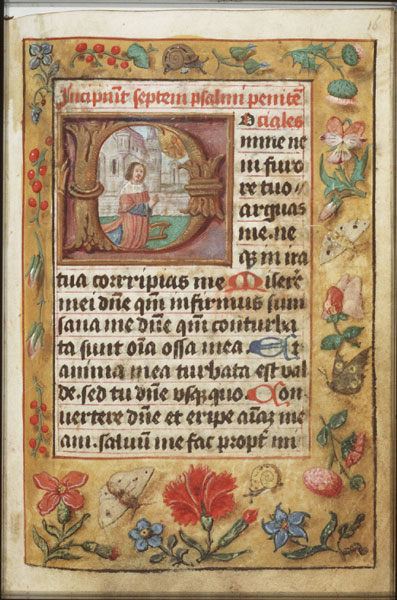 Incipiūt septem psalmi penitē
D O ciales
mine ne
in furo
re tuo
arguas
me. ne
qꝫ in ira
tua corripias me Misere
mei dn̄e qm̄ infirmus sum
sana me dn̄e qm̄ conturba
ta sunt oīa ossa mea Et
anima mea turbata est val
de. sed tu dn̄e vsqꝫ quo Con
uertere dn̄e et eripe aīaꝫ me
am. saluū me fac propt̄ mi